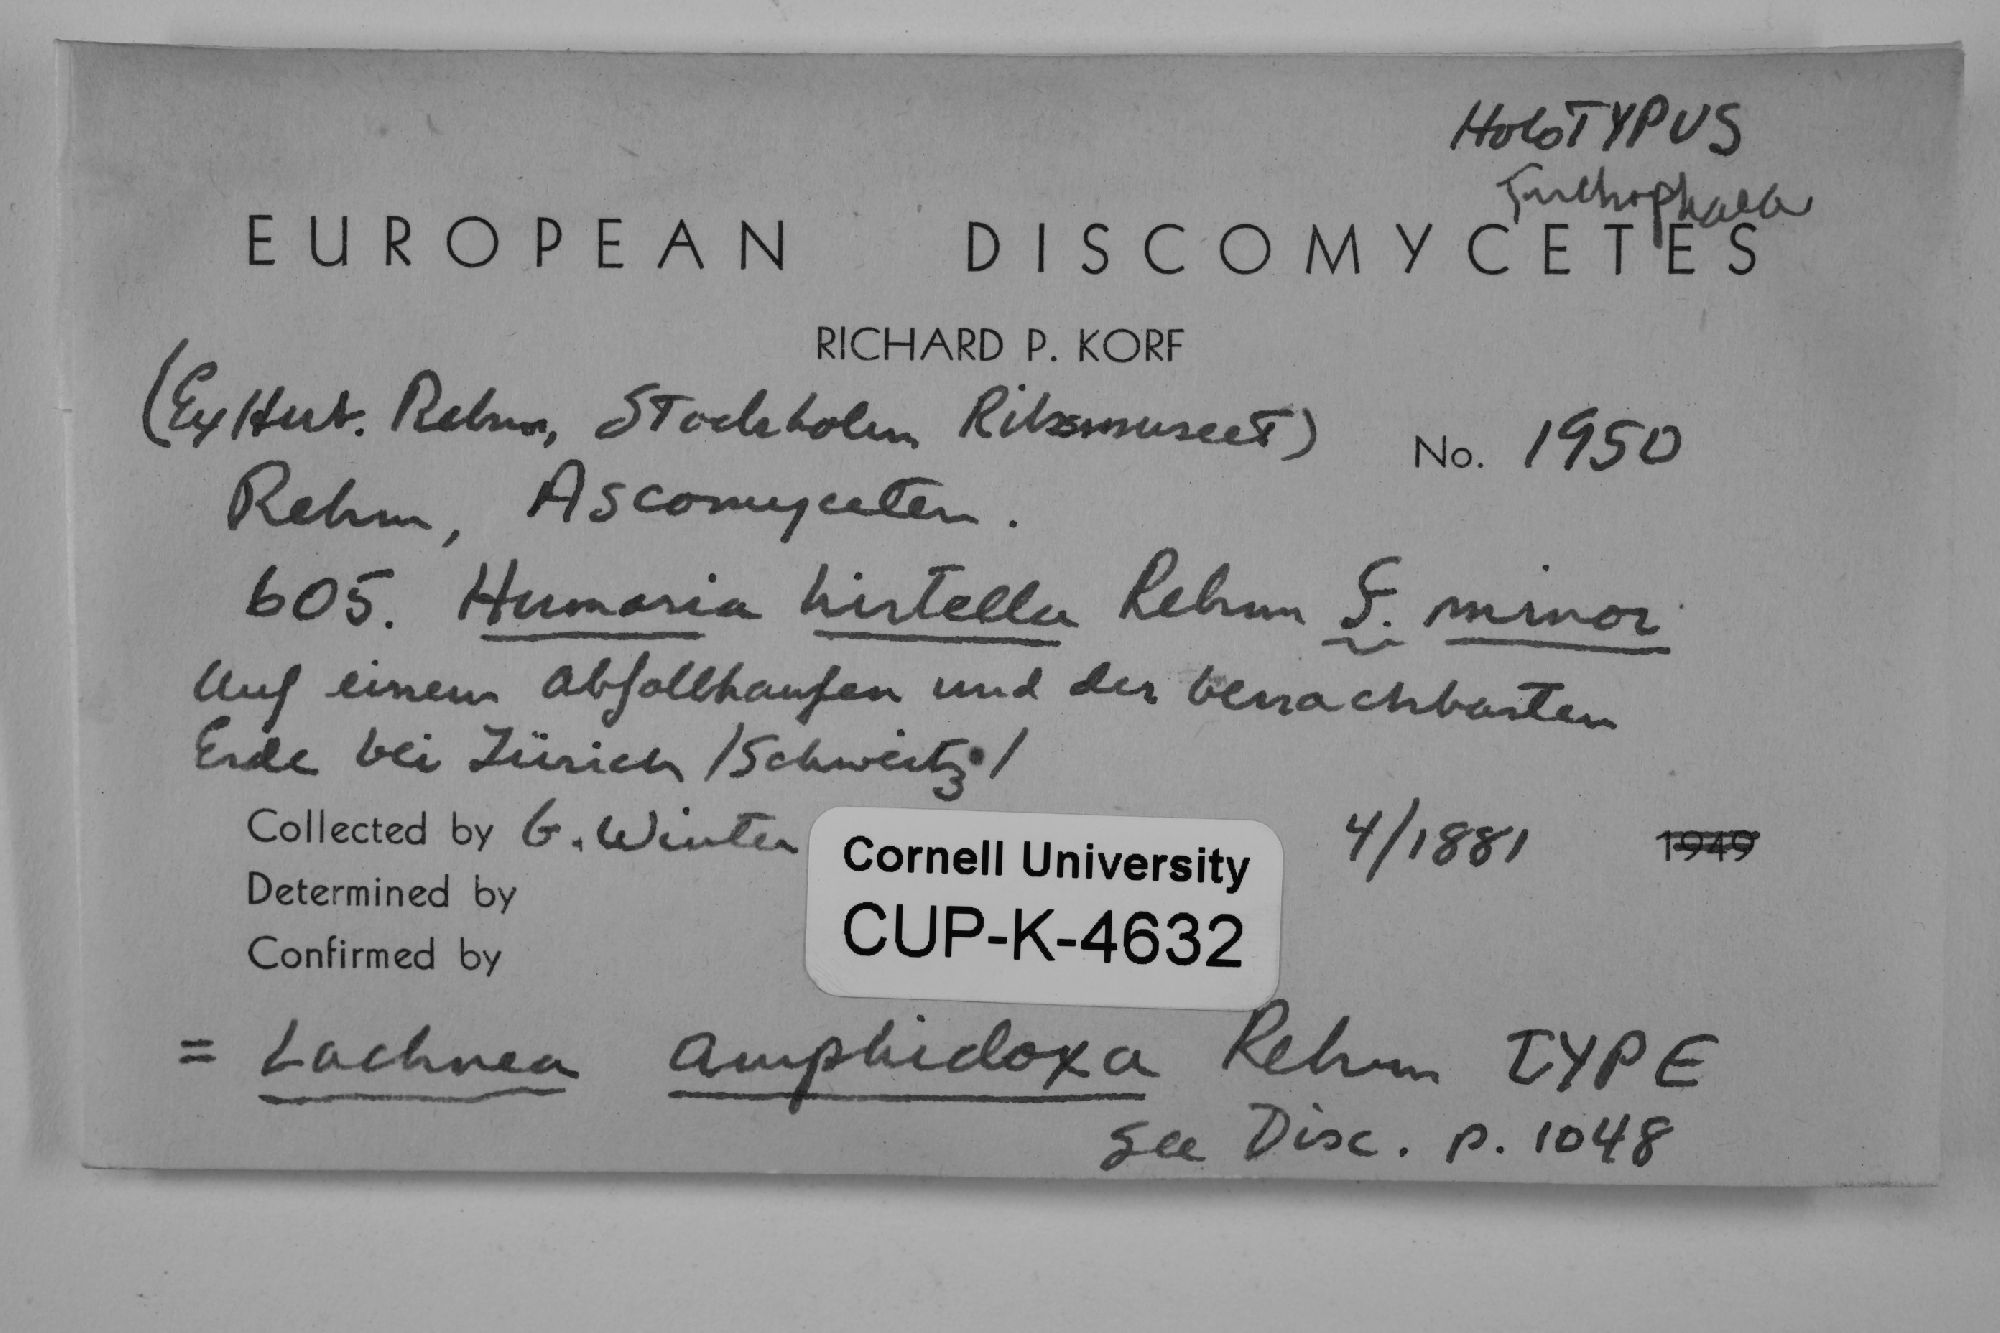 HoloTYPUS
EUROPEAN DISCOMYCETES
RICHARD P. KORF
(Ex Herb. Rehm, Stockholm Riksmuseet) No. 1950
Rehm, Ascomyceten.
605. Humaria hirtella Rehm f. minor
Auf einem Abfallhaufen und der benachbarten
Erde bei Zürich /Schweitz/
Collected by G. Winter 4/1881 1949
Determined by
Confirmed by
Cornell University
CUP-K-4632
= Lachnea amphidoxa Rehm TYPE
See Disc. p. 1048